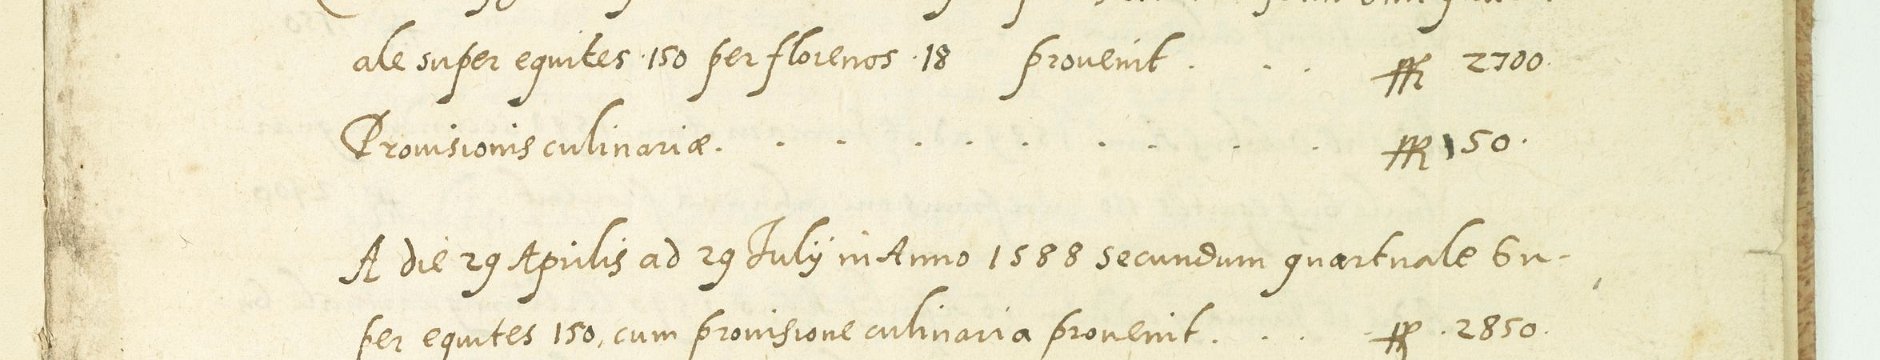 ale super equites 150 per florenos 18 provenit . . . ffl 2700.
Provisionis culinariæ. . . . . . . . . . ffl 150.
A die 29 Aprilis ad 29 Julij in Anno 1588 secundum quartuale Su-
per equites 150, cum provisione culinaria provenit. . . ffl . 2850.